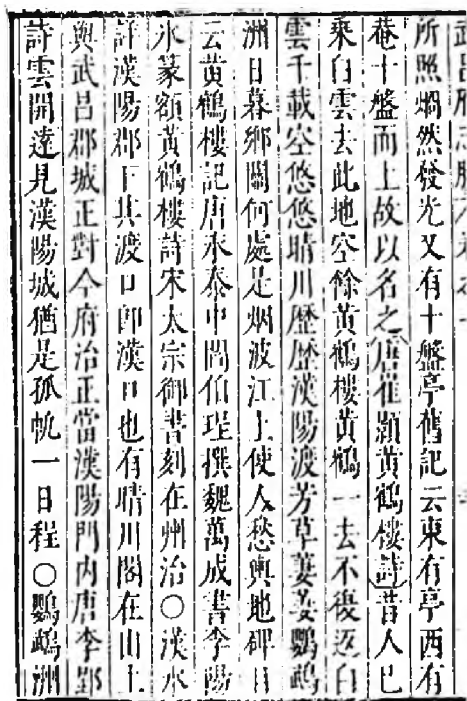 所照烱然發光又有十盤亭舊記云東有亭西有
巷十盤而上故以名之唐崔顥黃鶴樓詩昔人已
乘白雲去此地空餘黃鶴樓黃鶴一去不復返白
雲千載空悠悠晴川歷歷漢陽渡芳草萋萋鸚鵡
洲日暮鄉關何處是烟波江上使人愁輿地碑目
云黃鶴樓記唐永泰中閻伯瑆撰魏萬成書李陽
氷篆額黃鶴樓詩宋太宗御書刻在州治○漢水
詳漢陽郡下其渡口卽漢口也有晴川閣在山上
與武昌郡城正對今府治正當漢陽門內唐李郢
詩雲開遠見漢陽城猶是孤帆一日程○鸚鵡洲